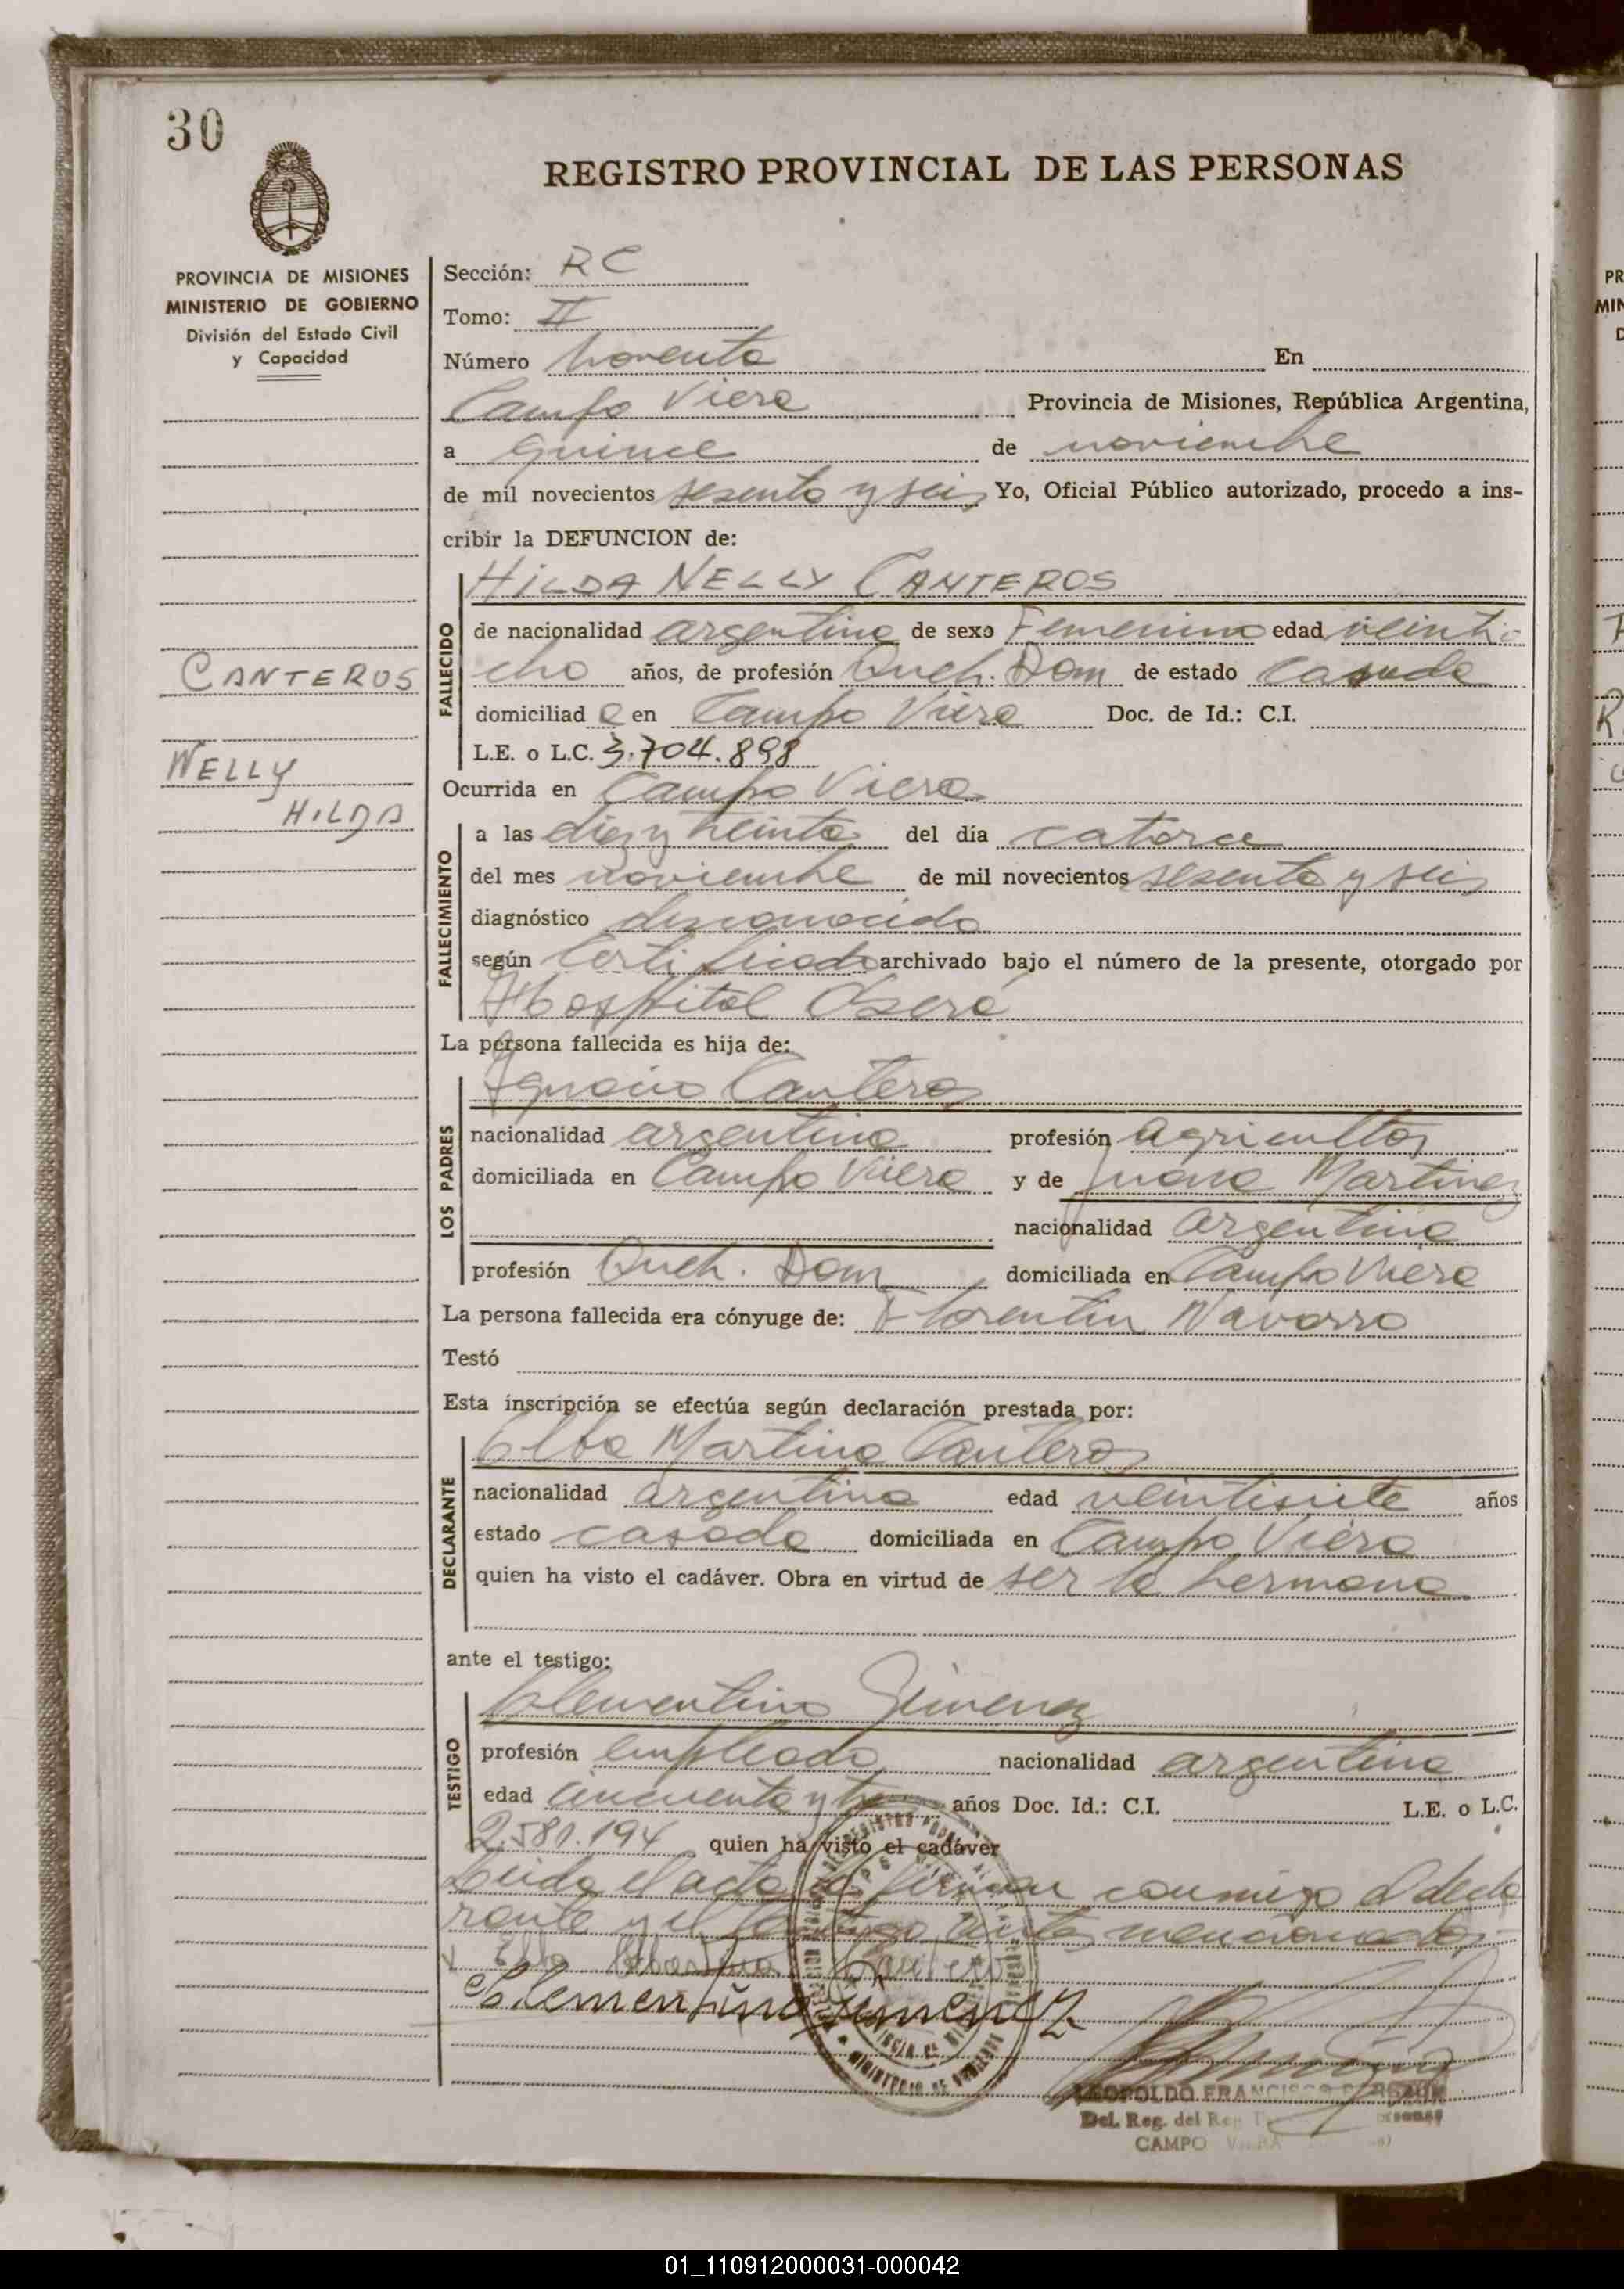 30
REGISTRO PROVINCIAL DE LAS PERSONAS
PROVINCIA DE MISIONES
MINISTERIO DE GOBIERNO
División del Estado Civil
y Capacidad
CANTEROS
NELLY
HILDA
Sección: RC
Tomo: II
Número Noventa En
Campo Viera Provincia de Misiones, República Argentina,
a quince de noviembre
de mil novecientos sesenta y seis Yo, Oficial Público autorizado, procedo a ins-
cribir la DEFUNCION de:
HILDA NELLY CANTEROS
FALLECIDO
de nacionalidad argentina de sexo Femenino edad veintio-
cho años, de profesión Queh. Dom de estado casada
domiciliad a en Campo Viera Doc. de Id.: C.I.
L.E. o L.C. 3.704.898
Ocurrida en Campo Viera
FALLECIMIENTO
a las diez y treinta del día catorce
del mes noviembre de mil novecientos sesenta y seis
diagnóstico desconocido
según Certificado archivado bajo el número de la presente, otorgado por
Hospital Oberá
La persona fallecida es hija de:
LOS PADRES
Ignacio Canteros
nacionalidad argentino profesión agricultor
domiciliada en Campo Viera y de Juana Martinez
nacionalidad argentina
profesión Queh. Dom domiciliada en Campo Viera
La persona fallecida era cónyuge de: Florentin Navarro
Testó
Esta inscripción se efectúa según declaración prestada por:
DECLARANTE
Elba Martina Canteros
nacionalidad argentina edad veintisiete años
estado casada domiciliada en Campo Viera
quien ha visto el cadáver. Obra en virtud de ser la hermana
ante el testigo:
TESTIGO
Clementino Gimenez
profesión empleado nacionalidad argentino
edad cincuenta y tres años Doc. Id.: C.I. L.E. o L.C.
2.581.194 quien ha visto el cadáver
Leida el acta la firman conmigo el decla
rante y el testigo antes mencionados
Elba Canteros
Clementino Jimenez
LEOPOLDO FRANCISCO
Del. Reg. del Reg.
CAMPO VIERA
01_110912000031-000042